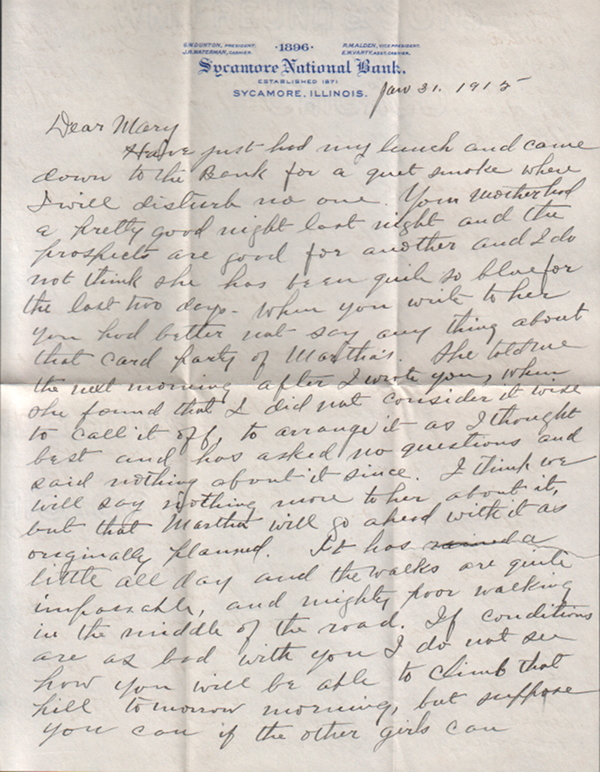 G.W. DUNTON, PRESIDENT.
J.A. WATERMAN, CASHIER.
· 1896 ·
P.M. ALDEN, VICE PRESIDENT.
E.W. HARTY, ASST. CASHIER.
Sycamore National Bank.
ESTABLISHED 1871
SYCAMORE, ILLINOIS.
Jan 31. 1915
Dear Mary
Have just had my lunch and came
down to the Bank for a quiet smoke where
I will disturb no one. Your Mother had
a pretty good night last night and the
prospects are good for another and I do
not think she has been quite so blue for
the last two days - When you write to her
you had better not say any thing about
that card party of Martha's. She told me
the next morning after I wrote you, when
she found that I did not consider it wise
to call it off, to arrange it as I thought
best and has asked no questions and
said nothing about it since. I think we
will say nothing more to her about it,
but that Martha will go ahead with it as
originally planned. It has rained a
little all day and the walks are quite
impassable, and mighty poor walking
in the middle of the road. If conditions
are as bad with you I do not see
how you will be able to climb that
hill tomorrow morning, but suppose
you can if the other girls can